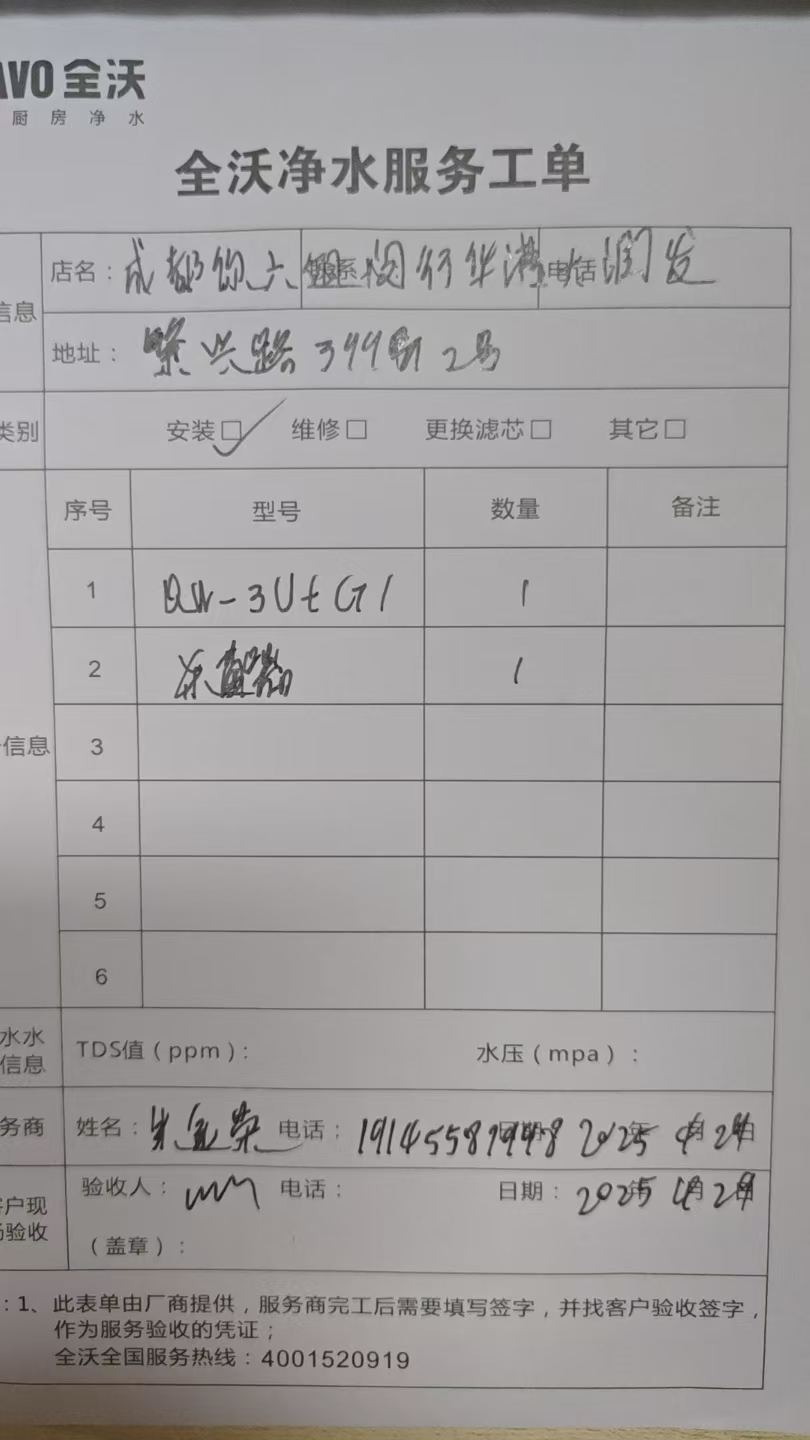 AVO 全沃
厨房净水
全沃净水服务工单
信息
店名：成都你六姐 联系 闵行华漕大润发 电话
地址：紫兴路399弄2号
类别
安装□✓ 维修□ 更换滤芯□ 其它□
序号 型号 数量 备注
1 QW-3U+G1 1
2 1
信息
3
4
5
6
水水
信息
TDS值（ppm）： 水压（mpa）：
务商
姓名：朱金荣 电话： 2025年 月
客户现
场验收
验收人： 电话： 日期：2025年 月
（盖章）：
：1、此表单由厂商提供，服务商完工后需要填写签字，并找客户验收签字，
作为服务验收的凭证；
全沃全国服务热线：4001520919